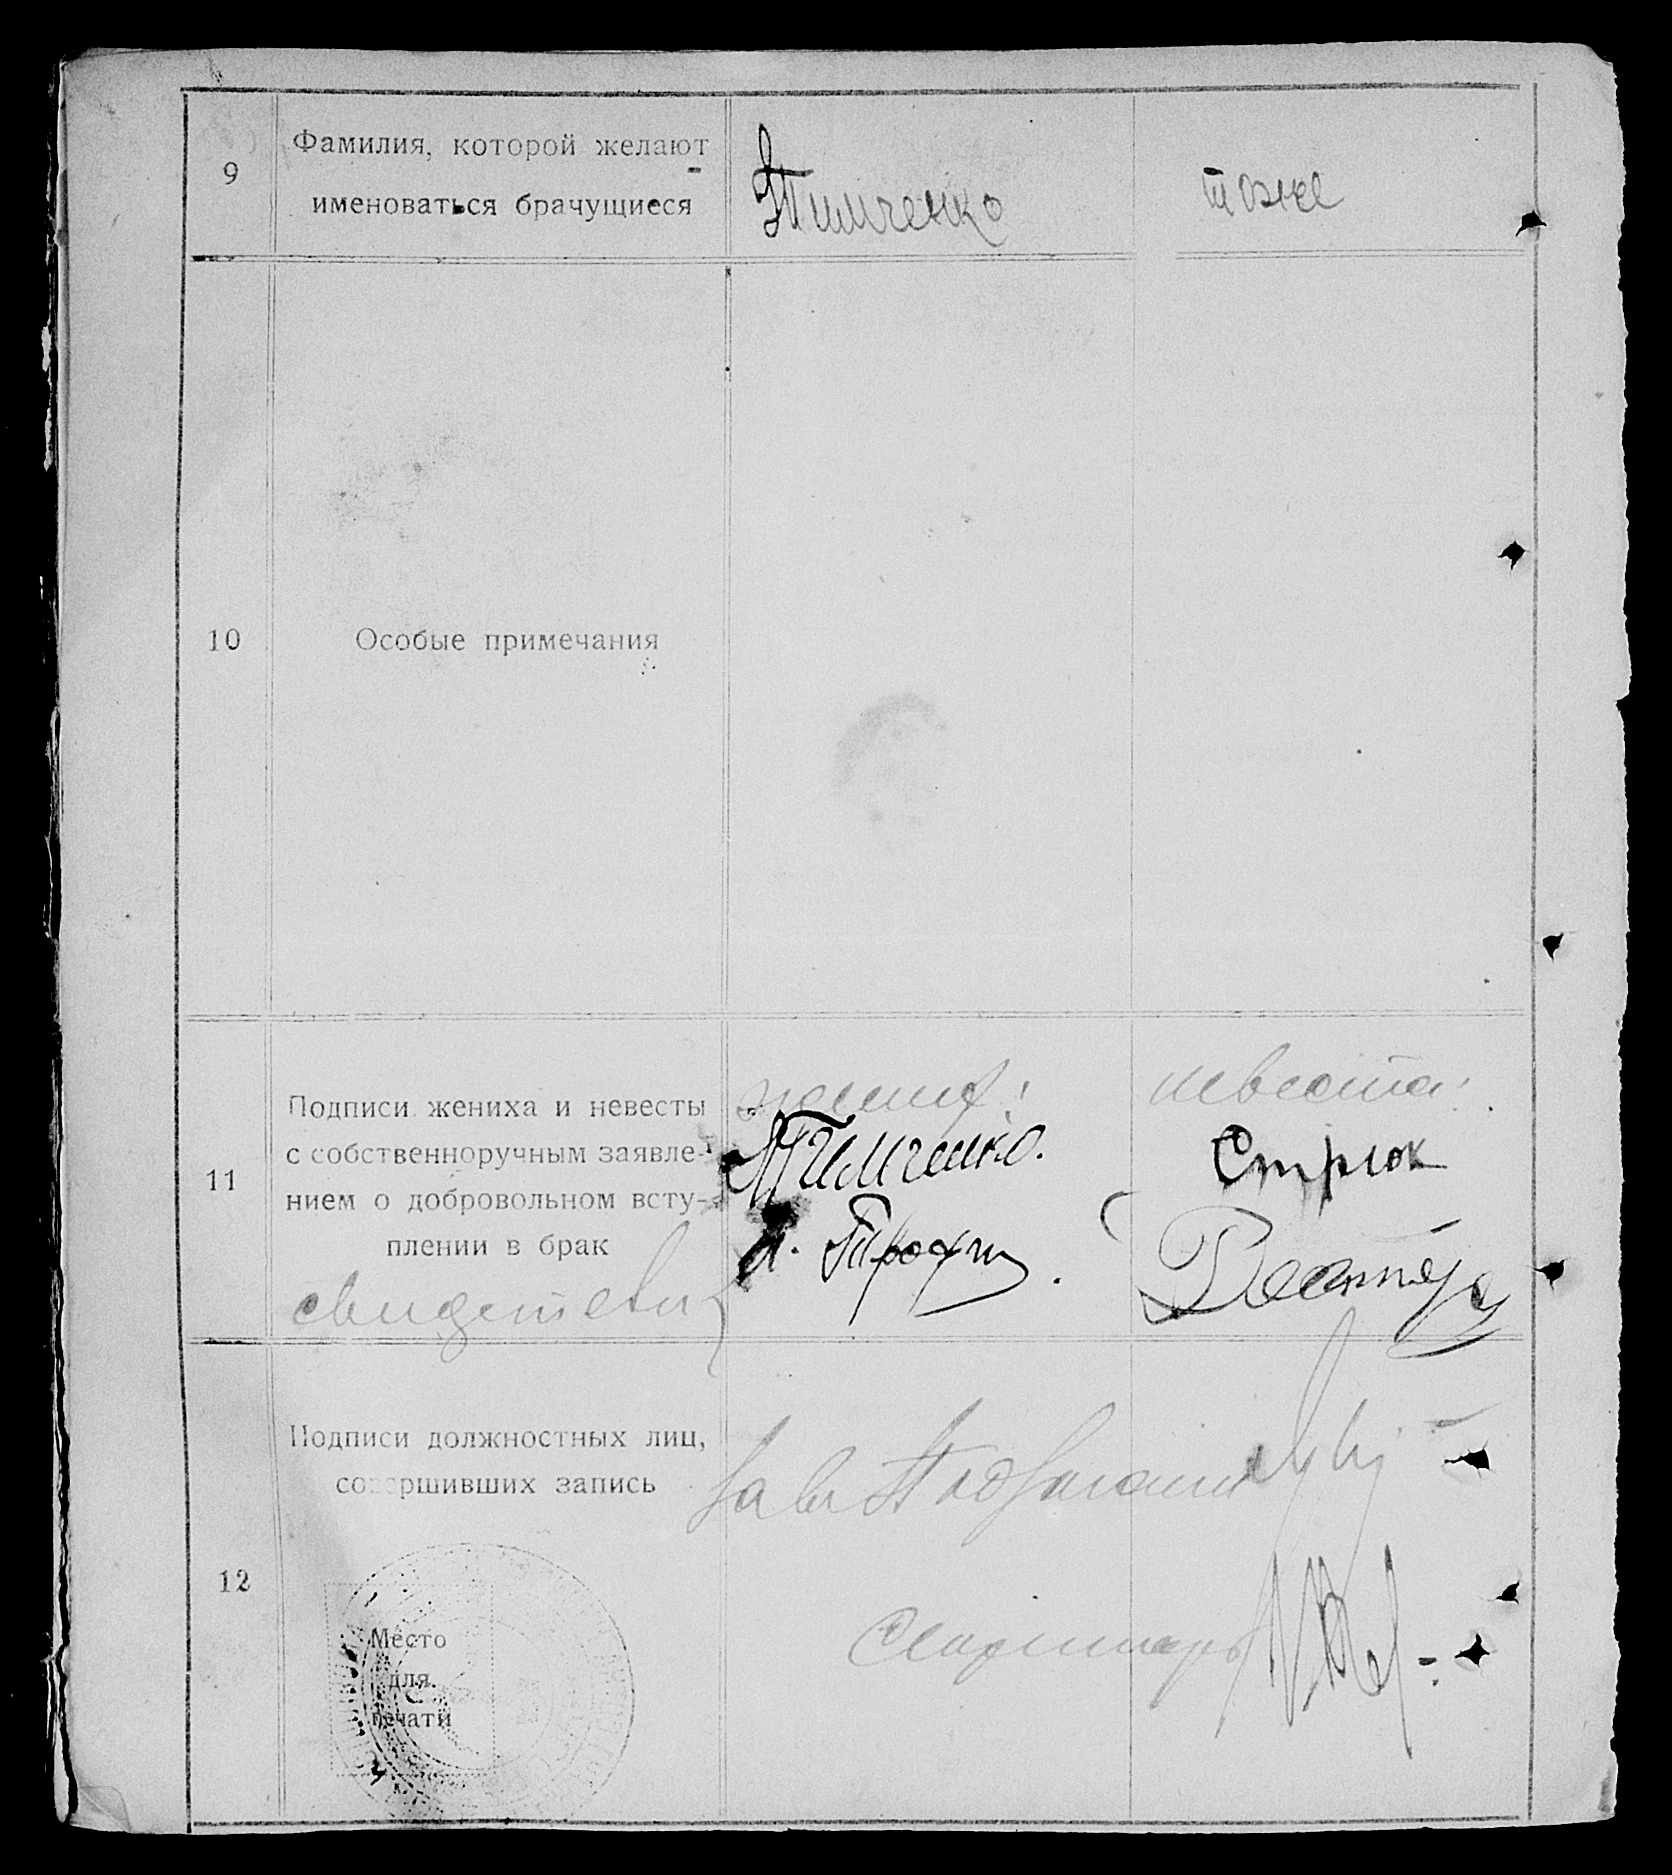 9
Фамилия, которой желают
именоваться брачущиеся
Тимченко
тоже
10
Особые примечания
11
Подписи жениха и невесты
с собственноручным заявле-
нием о добровольном всту-
плении в брак
свидетели
жених:
Тимченко.
невеста:
Стрюк
12
Подписи должностных лиц,
совершивших запись
Зав.
Место
для
печати